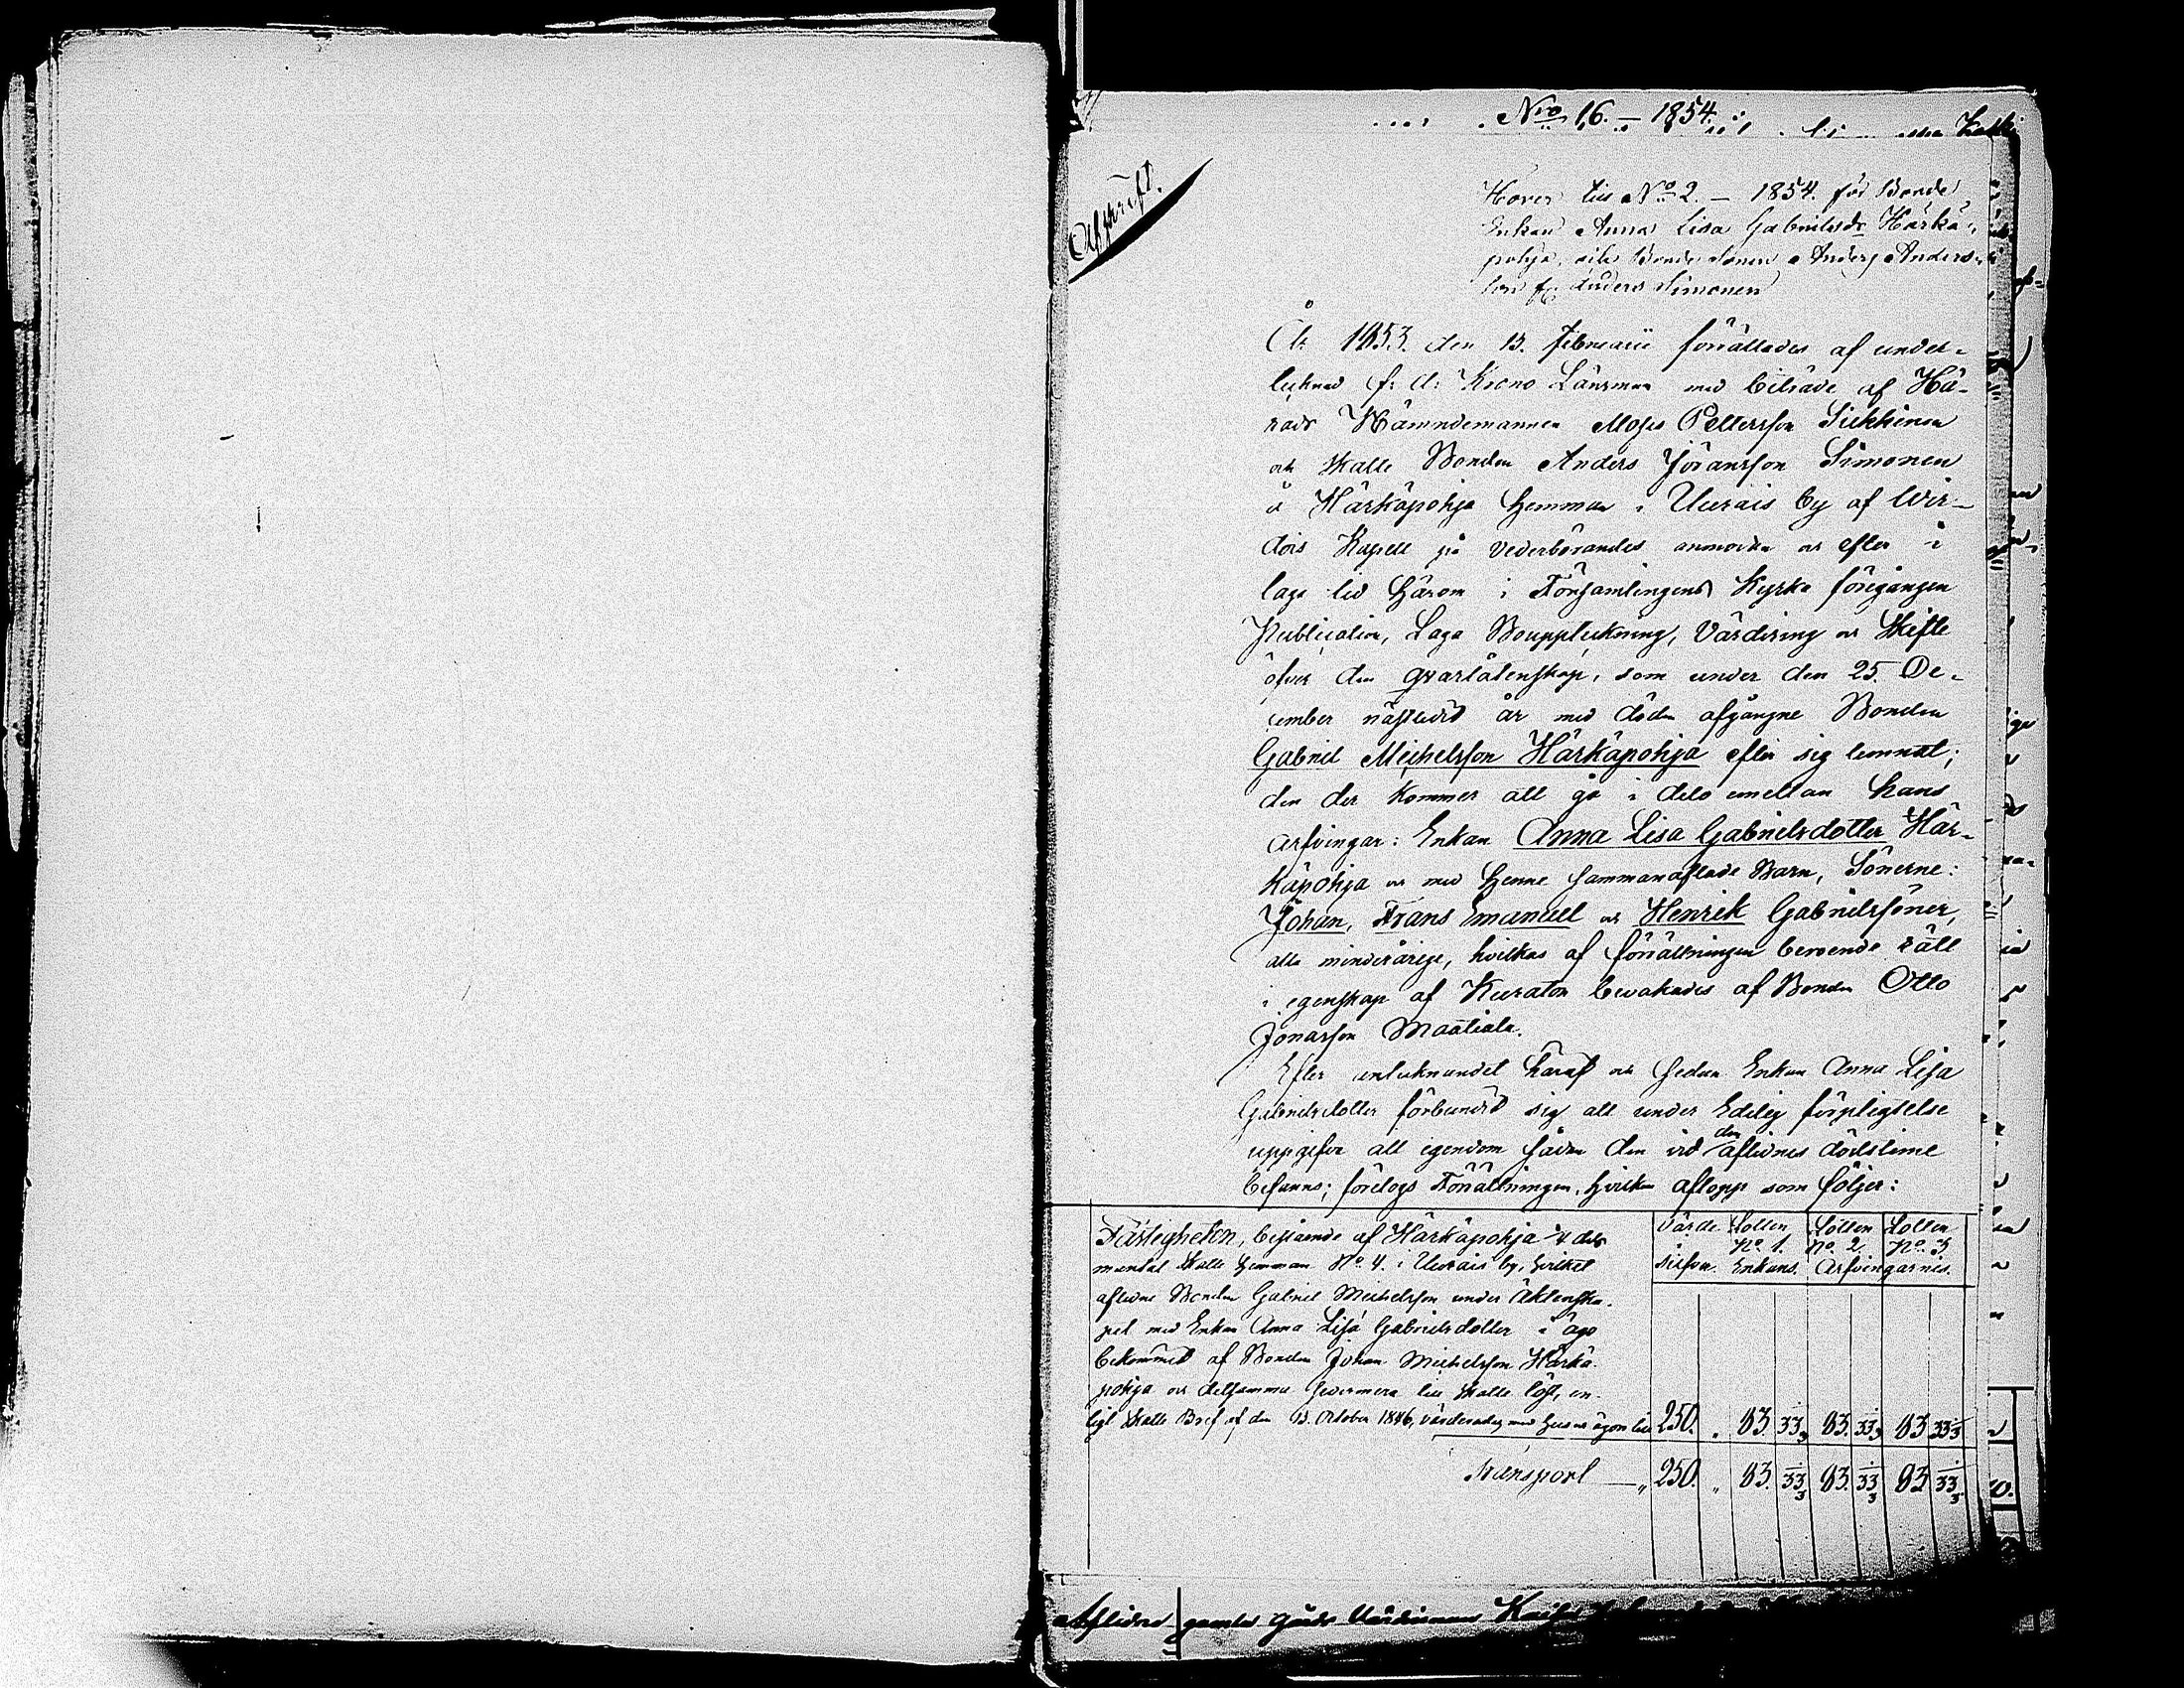 Nro 16. — 1854.
Afskrift.
Hörer till No 2. — 1854. för Bonde
Enkan Anna Lisa Gabrielsdr Härkä-
pohja, eller Bonde Sonen Anders Anders-
son Anders Simonen
År 1853. den 13. Februarii förrättades af under-
tecknad f: d: Krono Länsman med biträde af Hä-
rads Nämndemannen Moses Pettersson Sickkinen
och Skatte Bonden Anders Jöransson Simonen
å Härkäpohja Hemman i Uurais by af Wir-
dois Kapell på vederbörandes anmodan och efter i
laga tid härom i Församlingens Kyrka föregången
Publication, Laga Bouppteckning, Värdering och Skifte
öfver den qvarlåtenskap, som under den 25. De-
cember nästledit år med döden afgångne Bonden
Gabriel Michelsson Härkäpohja efter sig lemnat;
den der kommer att gå i delo emellan hans
arfvingar: Enkan Anna Lisa Gabrielsdotter Här-
käpohja och med henne sammanaflade Barn, Sönerne:
Johan, Frans Emanuel och Henrik Gabrielssöner,
alla minderårige, hvilkas af förrättningen beroende rätt
i egenskap af Kurator bevakades af Bonden Otto
Jonasson Määttälä.
Efter antecknandet häraf och sedan Enkan Anna Lisa
Gabrielsdotter förbundit sig att under Edelig förpligtelse
uppgifva all egendom sådan den vid den aflidnes dödstime
befanns; företogs Förrättningen, hvilken aflopp som följer:
Värde Lotten Lotten Lotten
i No. 1. No. 2. No. 3.
silfver. Enkans. Arfvingarnes.
Fästigheten, bestående af Härkäpohja ¼ dels
mantal Skatte Hemman No. 4. i Uurais by, hvilket
aflidne Bonden Gabriel Michelsson under äktenska-
pet med Enkan Anna Lisa Gabrielsdotter i ägo
bekommit af Bonden Johan Michelsson Härkä-
pohja och detsamma sedermera till Skatte löst, en-
ligt Skatte Bref af den 13. October 1846, värderades, med hus och ägor till 250. „ 83. 33⅓ 83. 33⅓ 83 33⅓
Transport — „ 250. „ 83. 33⅓ 83. 33⅓ 83 33⅓
Aflidne gamla Gårds Värdinnan